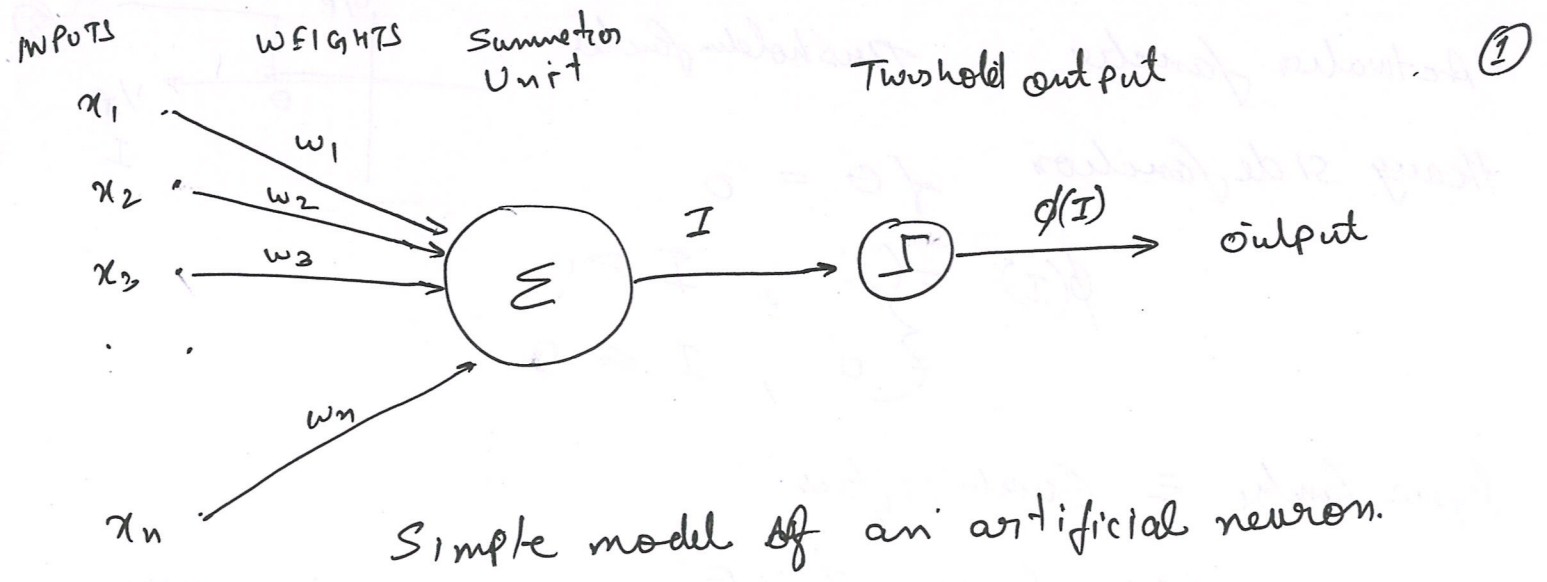 INPUTS WEIGHTS Summation Unit Threshold output ①
x1 w1
x2 w2
x3 w3
Σ I φ(I) output
wn
xn
Simple model of an artificial neuron.